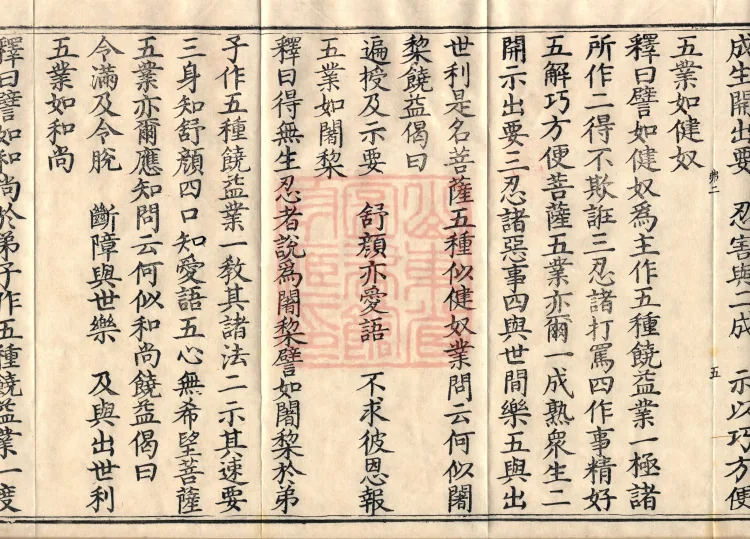 成生開出要　忍害與二成　示以巧方便
五業如健奴
釋曰譬如健奴為主作五種饒益業一極諸
所作二得不欺誑三忍諸打罵四作事精好
五解巧方便菩薩五業亦爾一成熟衆生二
開示出要三忍諸惡事四與世間樂五與出
世利是名菩薩五種似健奴業問云何似闍
棃饒益偈曰
遍授及示要　舒顔亦愛語　不求彼恩報
五業如闍棃
釋曰得無生忍者說為闍棃譬如闍棃於弟
子作五種饒益業一教其諸法二示其速要
三身知舒顔四口知愛語五心無希望菩薩
五業亦爾應知問云何似和尚饒益偈曰
令滿及令脫　斷障與世樂　及與出世利
五業如和尚
釋曰譬如和尚於弟子作五種饒益業一度
五